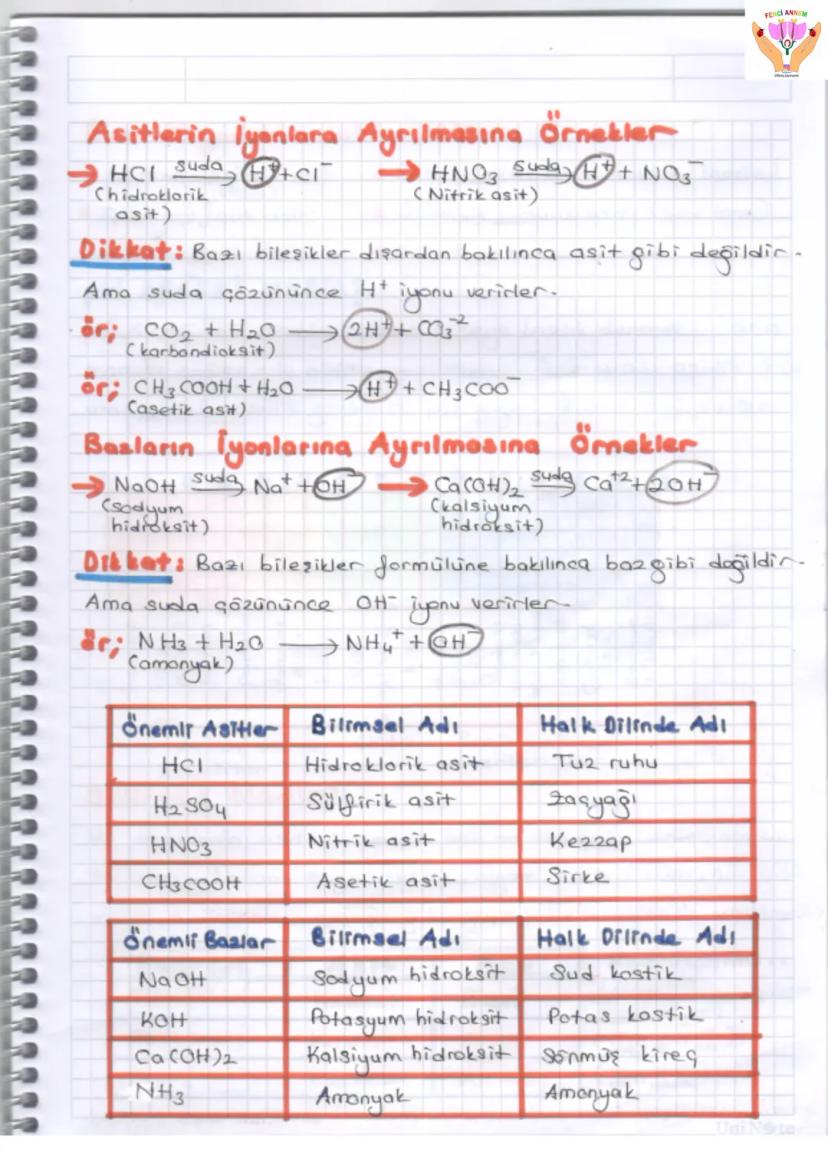 FENCİ ANNEM
Asitlerin İyonlara Ayrılmasına Örnekler
→ HCl suda→ H⁺ + Cl⁻ → HNO₃ suda→ H⁺ + NO₃⁻
(hidroklorik asit) (Nitrik asit)
Dikkat: Bazı bileşikler dışardan bakılınca asit gibi değildir.
Ama suda çözününce H⁺ iyonu verirler.
ör; CO₂ + H₂O → 2H⁺ + CO₃⁻²
(karbondioksit)
ör; CH₃COOH + H₂O → H⁺ + CH₃COO⁻
(asetik asit)
Bazların İyonlarına Ayrılmasına Örnekler
→ NaOH suda→ Na⁺ + OH⁻ → Ca(OH)₂ suda→ Ca⁺² + 2OH⁻
(sodyum hidroksit) (kalsiyum hidroksit)
Dikkat: Bazı bileşikler formülüne bakılınca baz gibi değildir.
Ama suda çözününce OH⁻ iyonu verirler.
ör; NH₃ + H₂O → NH₄⁺ + OH⁻
(amonyak)
Önemli Asitler Bilimsel Adı Halk Dilinde Adı
HCl Hidroklorik asit Tuz ruhu
H₂SO₄ Sülfirik asit Zaçyağı
HNO₃ Nitrik asit Kezzap
CH₃COOH Asetik asit Sirke
Önemli Bazlar Bilimsel Adı Halk Dilinde Adı
NaOH Sodyum hidroksit Sud kostik
KOH Potasyum hidroksit Potas kostik
Ca(OH)₂ Kalsiyum hidroksit Sönmüş kireç
NH₃ Amonyak Amonyak